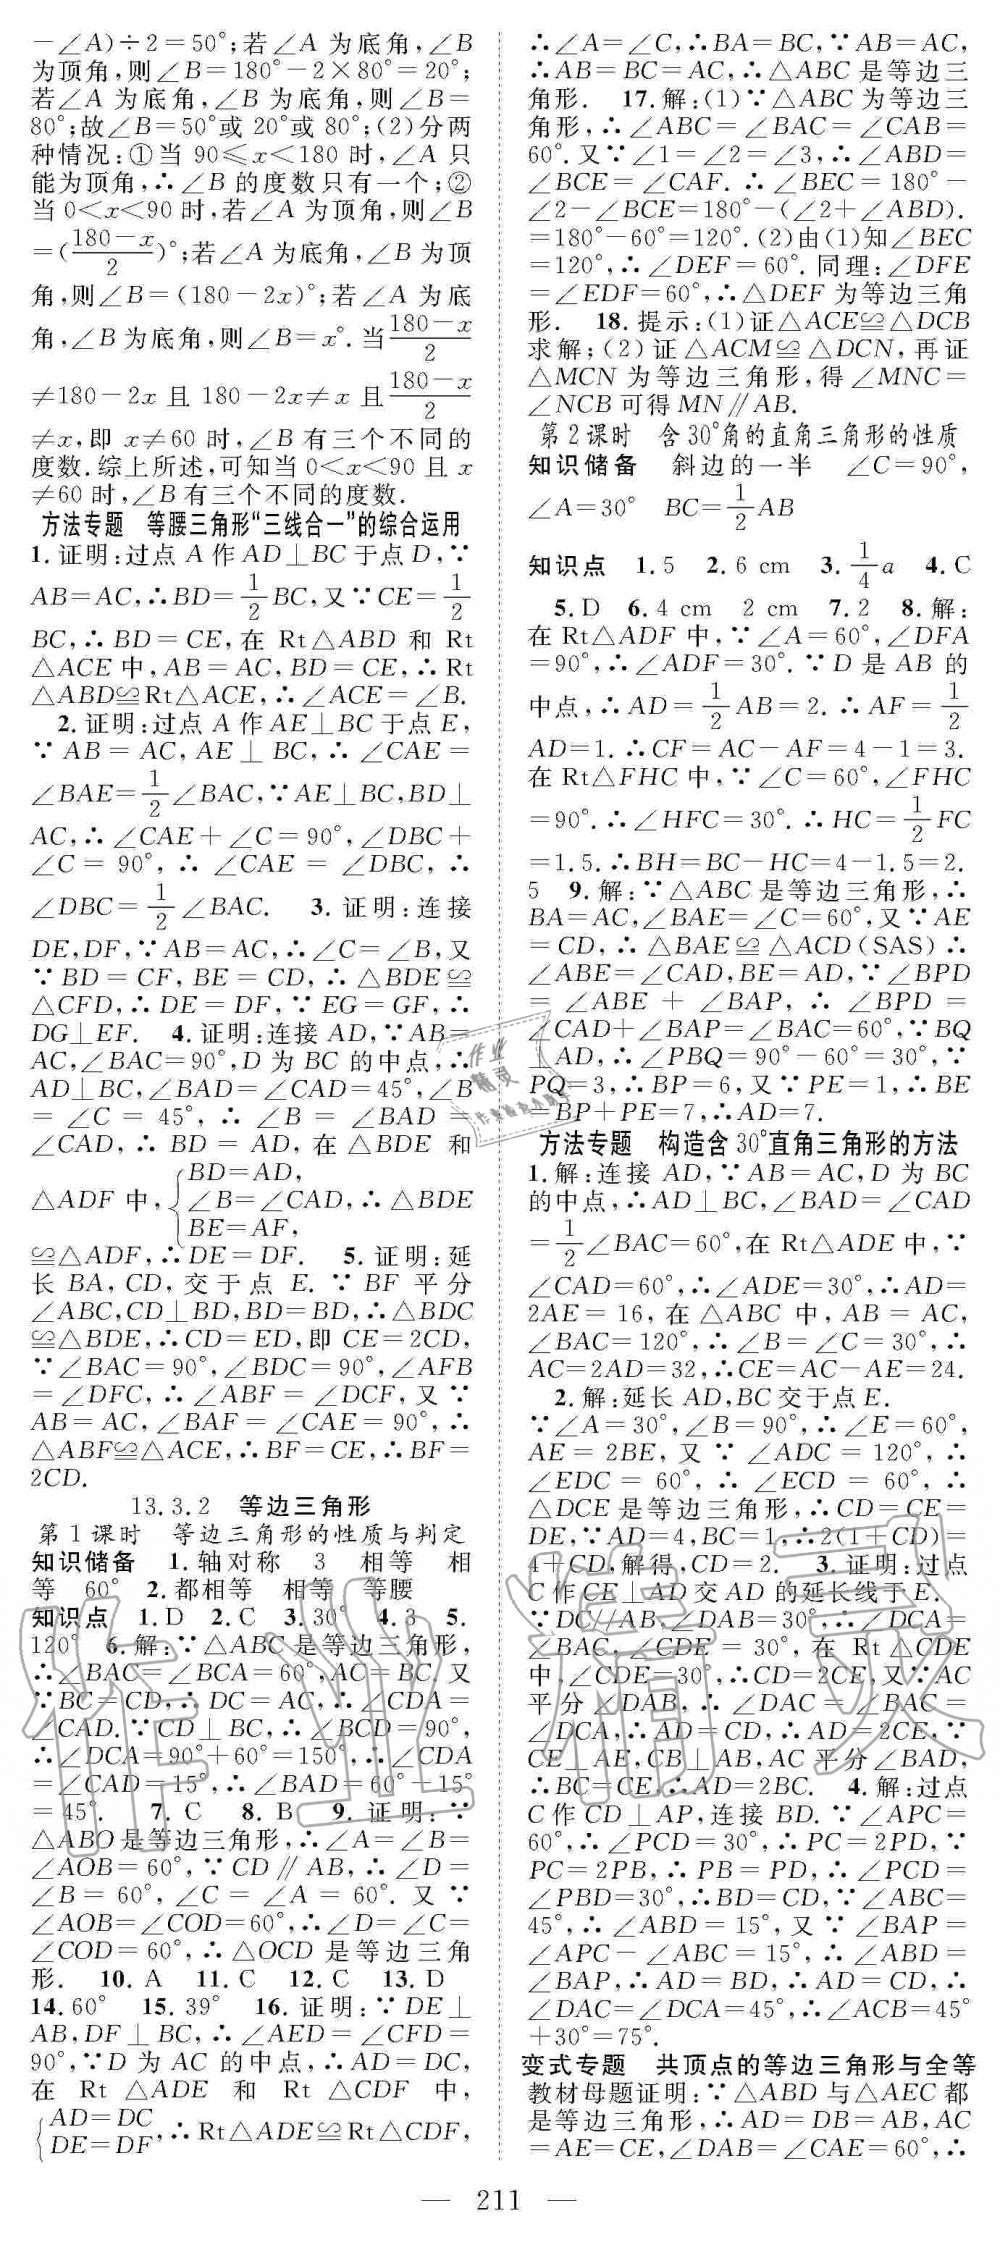 －∠A)÷2＝50°;若∠A 为底角,∠B
为顶角,则∠B＝180°－2×80°＝20°;
若∠A 为底角,∠B 为底角,则∠B＝
80°;故∠B＝50°或 20°或 80°;(2)分两
种情况:①当 90≤x＜180 时,∠A 只
能为顶角,∴∠B 的度数只有一个;②
当 0＜x＜90 时,若∠A 为顶角,则∠B
＝(\frac{180－x}{2})°;若∠A 为底角,∠B 为顶
角,则∠B＝(180－2x)°;若∠A 为底
角,∠B 为底角,则∠B＝x°.当\frac{180－x}{2}
≠180－2x 且 180－2x≠x 且\frac{180－x}{2}
≠x,即 x≠60 时,∠B 有三个不同的
度数.综上所述,可知当 0＜x＜90 且 x
≠60 时,∠B 有三个不同的度数.
方法专题 等腰三角形“三线合一”的综合运用
1.证明:过点 A 作 AD⊥BC 于点 D,∵
AB＝AC,∴BD＝\frac{1}{2}BC,又∵CE＝\frac{1}{2}
BC,∴BD＝CE,在 Rt△ABD 和 Rt
△ACE 中,AB＝AC,BD＝CE,∴Rt
△ABD≌Rt△ACE,∴∠ACE＝∠B.
2.证明:过点 A 作 AE⊥BC 于点 E,
∵AB＝AC,AE⊥BC,∴∠CAE＝
∠BAE＝\frac{1}{2}∠BAC,∵AE⊥BC,BD⊥
AC,∴∠CAE＋∠C＝90°,∠DBC＋
∠C＝90°,∴∠CAE＝∠DBC,∴
∠DBC＝\frac{1}{2}∠BAC. 3.证明:连接
DE,DF,∵AB＝AC,∴∠C＝∠B,又
∵BD＝CF,BE＝CD,∴△BDE≌
△CFD,∴DE＝DF,∵EG＝GF,∴
DG⊥EF. 4.证明:连接 AD,∵AB＝
AC,∠BAC＝90°,D 为 BC 的中点,∴
AD⊥BC,∠BAD＝∠CAD＝45°,∠B
＝∠C＝45°,∴∠B＝∠BAD＝
∠CAD,∴BD＝AD,在△BDE 和
△ADF 中,{BD＝AD, ∠B＝∠CAD, BE＝AF,∴△BDE
≌△ADF,∴DE＝DF. 5.证明:延
长 BA,CD,交于点 E.∵BF 平分
∠ABC,CD⊥BD,BD＝BD,∴△BDC
≌△BDE,∴CD＝ED,即 CE＝2CD,
∵∠BAC＝90°,∠BDC＝90°,∠AFB
＝∠DFC,∴∠ABF＝∠DCF,又∵
AB＝AC,∠BAF＝∠CAE＝90°,∴
△ABF≌△ACE,∴BF＝CE,∴BF＝
2CD.
13.3.2 等边三角形
第 1 课时 等边三角形的性质与判定
知识储备 1.轴对称 3 相等 相
等 60° 2.都相等 相等 等腰
知识点 1.D 2.C 3.30° 4.3 5.
120° 6.解:∵△ABC 是等边三角形,
∴∠BAC＝∠BCA＝60°,AC＝BC,又
∵BC＝CD,∴DC＝AC,∴∠CDA＝
∠CAD.∵CD⊥BC,∴∠BCD＝90°,
∴∠DCA＝90°＋60°＝150°,∴∠CDA
＝∠CAD＝15°,∴∠BAD＝60°－15°
＝45°. 7.C 8.B 9.证明:∵
△ABO 是等边三角形,∴∠A＝∠B＝
∠AOB＝60°,∵CD∥AB,∴∠D＝
∠B＝60°,∠C＝∠A＝60°.又∵
∠AOB＝∠COD＝60°,∴∠D＝∠C＝
∠COD＝60°,∴△OCD 是等边三角
形. 10.A 11.C 12.C 13.D
14.60° 15.39° 16.证明:∵DE⊥
AB,DF⊥BC,∴∠AED＝∠CFD＝
90°,∵D 为 AC 的中点,∴AD＝DC,
在 Rt△ADE 和 Rt△CDF 中,
{AD＝DC DE＝DF,∴Rt△ADE≌Rt△CDF,
∴∠A＝∠C,∴BA＝BC,∵AB＝AC,
∴AB＝BC＝AC,∴△ABC 是等边三
角形. 17.解:(1)∵△ABC 为等边三
角形,∴∠ABC＝∠BAC＝∠CAB＝
60°.又∵∠1＝∠2＝∠3,∴∠ABD＝
∠BCE＝∠CAF.∴∠BEC＝180°－
∠2－∠BCE＝180°－(∠2＋∠ABD).
＝180°－60°＝120°.(2)由(1)知∠BEC
＝120°,∴∠DEF＝60°.同理:∠DFE
＝∠EDF＝60°,∴△DEF 为等边三角
形. 18.提示:(1)证△ACE≌△DCB
求解;(2)证△ACM≌△DCN,再证
△MCN 为等边三角形,得∠MNC＝
∠NCB 可得 MN∥AB.
第 2 课时 含 30°角的直角三角形的性质
知识储备 斜边的一半 ∠C＝90°,
∠A＝30° BC＝\frac{1}{2}AB
知识点 1.5 2.6 cm 3.\frac{1}{4}a 4.C
5.D 6.4 cm 2 cm 7.2 8.解:
在 Rt△ADF 中,∵∠A＝60°,∠DFA
＝90°,∴∠ADF＝30°.∵D 是 AB 的
中点,∴AD＝\frac{1}{2}AB＝2.∴AF＝\frac{1}{2}
AD＝1.∴CF＝AC－AF＝4－1＝3.
在 Rt△FHC 中,∵∠C＝60°,∠FHC
＝90°.∴∠HFC＝30°.∴HC＝\frac{1}{2}FC
＝1.5.∴BH＝BC－HC＝4－1.5＝2.
5 9.解:∵△ABC 是等边三角形,∴
BA＝AC,∠BAE＝∠C＝60°,又∵AE
＝CD,∴△BAE≌△ACD(SAS)∴
∠ABE＝∠CAD,BE＝AD,∵∠BPD
＝∠ABE＋∠BAP,∴∠BPD＝
∠CAD＋∠BAP＝∠BAC＝60°,∵BQ
⊥AD,∴∠PBQ＝90°－60°＝30°,∵
PQ＝3,∴BP＝6,又∵PE＝1,∴BE
＝BP＋PE＝7,∴AD＝7.
方法专题 构造含 30°直角三角形的方法
1.解:连接 AD,∵AB＝AC,D 为 BC
的中点,∴AD⊥BC,∠BAD＝∠CAD
＝\frac{1}{2}∠BAC＝60°,在 Rt△ADE 中,∵
∠CAD＝60°,∴∠ADE＝30°,∴AD＝
2AE＝16,在△ABC 中,AB＝AC,
∠BAC＝120°,∴∠B＝∠C＝30°,∴
AC＝2AD＝32,∴CE＝AC－AE＝24.
2.解:延长 AD,BC 交于点 E.
∵∠A＝30°,∠B＝90°,∴∠E＝60°,
AE＝2BE,又∵∠ADC＝120°,∴
∠EDC＝60°,∴∠ECD＝60°,∴
△DCE 是等边三角形,∴CD＝CE＝
DE,∵AD＝4,BC＝1,∴2(1＋CD)＝
4＋CD,解得,CD＝2. 3.证明:过点
C 作 CE⊥AD 交 AD 的延长线于 E.
∵DC//AB,∠DAB＝30°,∴∠DCA＝
∠BAC,∠CDE＝30°,在 Rt△CDE
中,∠CDE＝30°,∴CD＝2CE,又∵AC
平分∠DAB,∴∠DAC＝∠BAC＝
∠DCA,∴AD＝CD,∴AD＝2CE,∵
CE⊥AE,CB⊥AB,AC 平分∠BAD,
∴BC＝CE,∴AD＝2BC. 4.解:过点
C 作 CD⊥AP,连接 BD.∵∠APC＝
60°,∴∠PCD＝30°,∴PC＝2PD,∵
PC＝2PB,∴PB＝PD,∴∠PCD＝
∠PBD＝30°,∴BD＝CD,∵∠ABC＝
45°,∴∠ABD＝15°,又∵∠BAP＝
∠APC－∠ABC＝15°,∴∠ABD＝
∠BAP,∴AD＝BD,∴AD＝CD,∴
∠DAC＝∠DCA＝45°,∴∠ACB＝45°
＋30°＝75°.
变式专题 共顶点的等边三角形与全等
教材母题证明:∵△ABD 与△AEC 都
是等边三角形,∴AD＝DB＝AB,AC
＝AE＝CE,∠DAB＝∠CAE＝60°,∴
— 211 —
作业精灵
作业
精灵